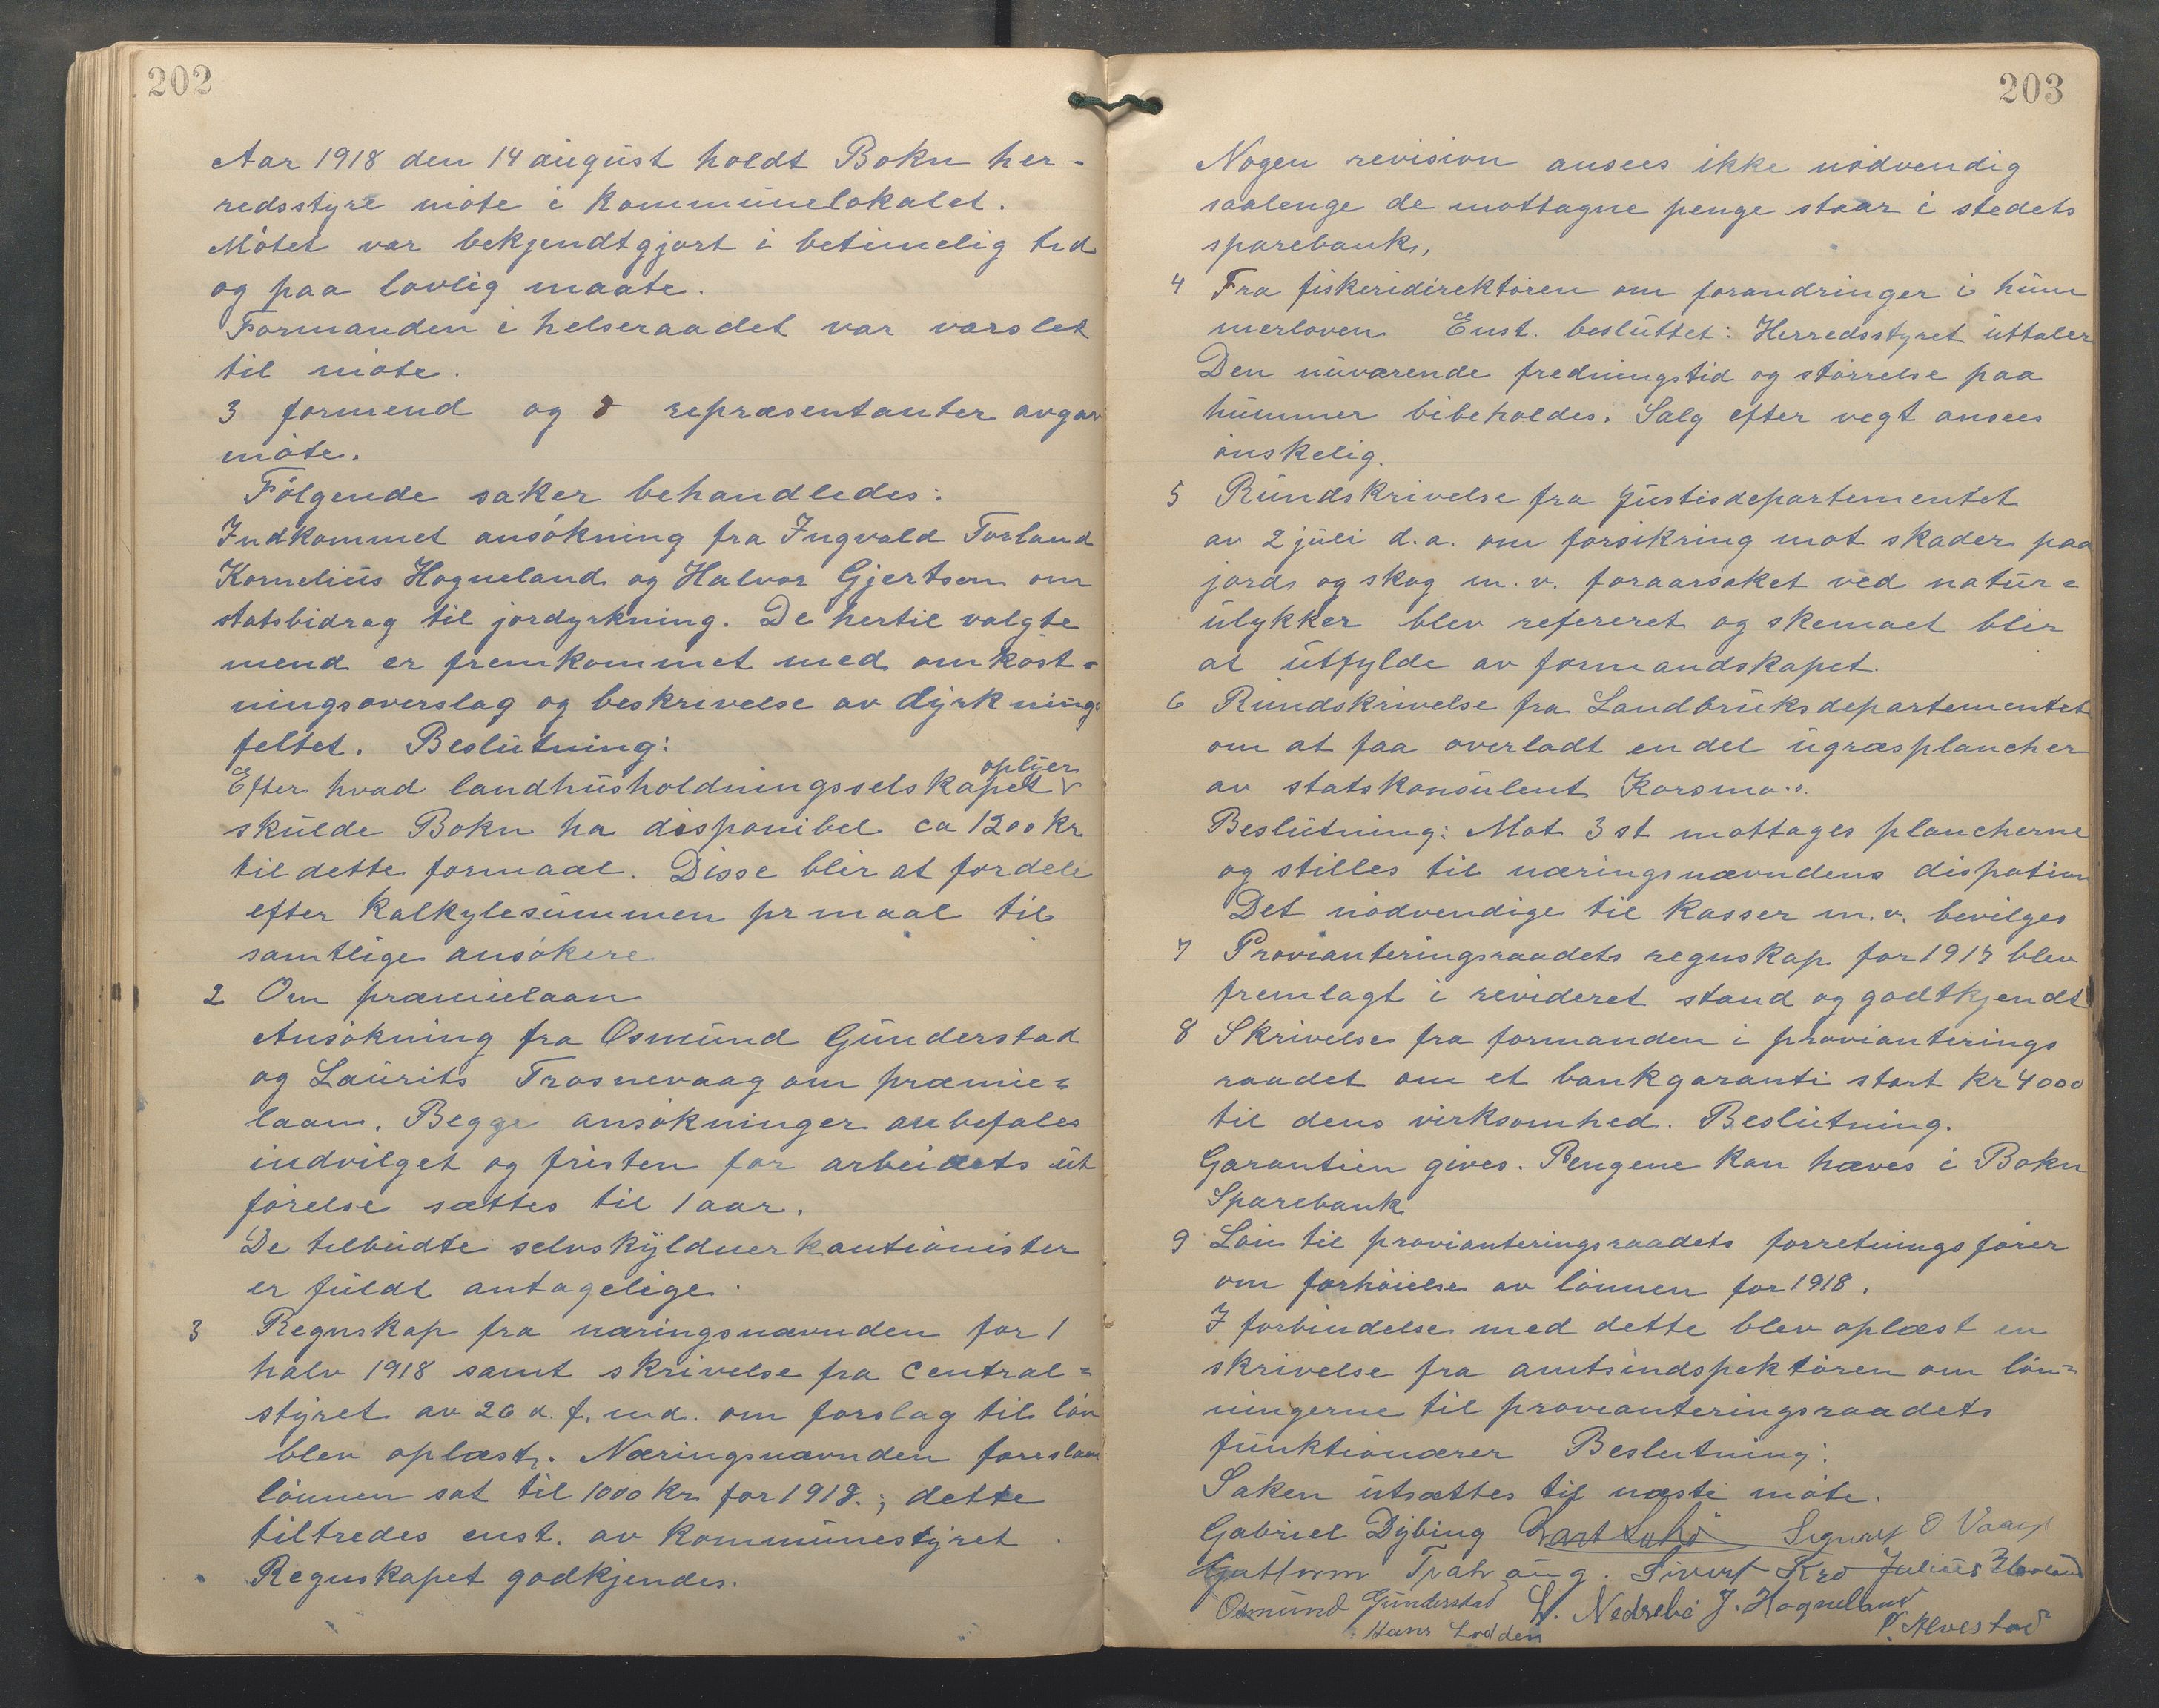 202
Aar 1918 den 14 august holdt Bokn her-
redsstyre møte i Kommunelokalet.
Møtet var bekjendtgjort i betimelig tid
og paa lovlig maate.
Formanden i helseraadet var varslet
til møte.
3 formend og 8 repræsentanter avgav
møte.
Følgende saker behandledes:
Indkommet ansøkning fra Ingvald Torland
Kornelius Hogneland og Halvor Gjertsen om
statsbidrag til jordyrkning. De hertil valgte
mend er fremkommet med omkost-
ningsoverslag og beskrivelse av dyrknings
feltet. Beslutning:
oplyser
Efter hvad landhusholdningsselskapet v
skulde Bokn ha disponibel ca 1200 kr
til dette formaal. Disse blir at fordele
efter kalkylesummen pr maal til
samtlige ansøkere
2 Om præmielaan
Ansøkning fra Osmund Gunderstad
og Laurits Trosnevaag om præmie=
laan. Begge ansøkninger anbefales
indvilget og fristen for arbeidets ut
førelse sættes til 1 aar.
De tilbudte selvskyldnerkautionister
er fuldt antagelige.
3 Regnskap fra næringsnævnden for 1
halv 1918 samt skrivelse fra Central=
styret av 26 d. f. md. om forslag til løn
blev oplæst. Næringsnævnden foreslaar
lønnen sat til 1000 kr for 1918.; dette
tiltredes enst. av kommunestyret.
Regnskapet godkjendes.
203
Nogen revision ansees ikke nødvendig
saalenge de mottagne penge staar i stedets
sparebank,
4 Fra fiskeridirektøren om forandringer i hum
merloven Enst. besluttet: Herredsstyret uttaler
Den nuværende fredningstid og størrelse paa
hummer bibeholdes. Salg efter vegt ansees
ønskelig.
5 Rundskrivelse fra Justisdepartementet
av 2 juli d.a. om forsikring mot skader paa
jord og skog m.v. foraarsaket ved natur=
ulykker blev refereret og skemaet blir
at utfylde av formandskapet.
6 Rundskrivelse fra Landbruksdepartementet
om at faa overladt en del ugræsplancher
av statskonsulent Korsmo.
Beslutning: Mot 3 st mottages plancherne
og stilles til næringsnævndens dispotion
Det nødvendige til kasser m.v. bevilges
7 Provianteringsraadets regnskap for 1917 blev
fremlagt i revideret stand og godtkjendt
8 Skrivelse fra formanden i provianterings
raadet om et bankgaranti stort kr 4000
til dens virksomhed. Beslutning.
Garantien gives. Pengene kan hæves i Bokn
Sparebank
9 Løn til provianteringsraadets forretningsfører
om forhøielse av lønnen for 1918.
I forbindelse med dette blev oplæst en
skrivelse fra amtsindspektøren om løn=
ningerne til provianteringsraadets
funktionærer Beslutning:
Saken utsættes til næste møte.
Gabriel Dybing Sigvart O Vaag
Guttorm Sivert Kro Julius
Osmund Gunderstad L. Nedrebø J. Hogneland
Hans Lodden P. Alvestad